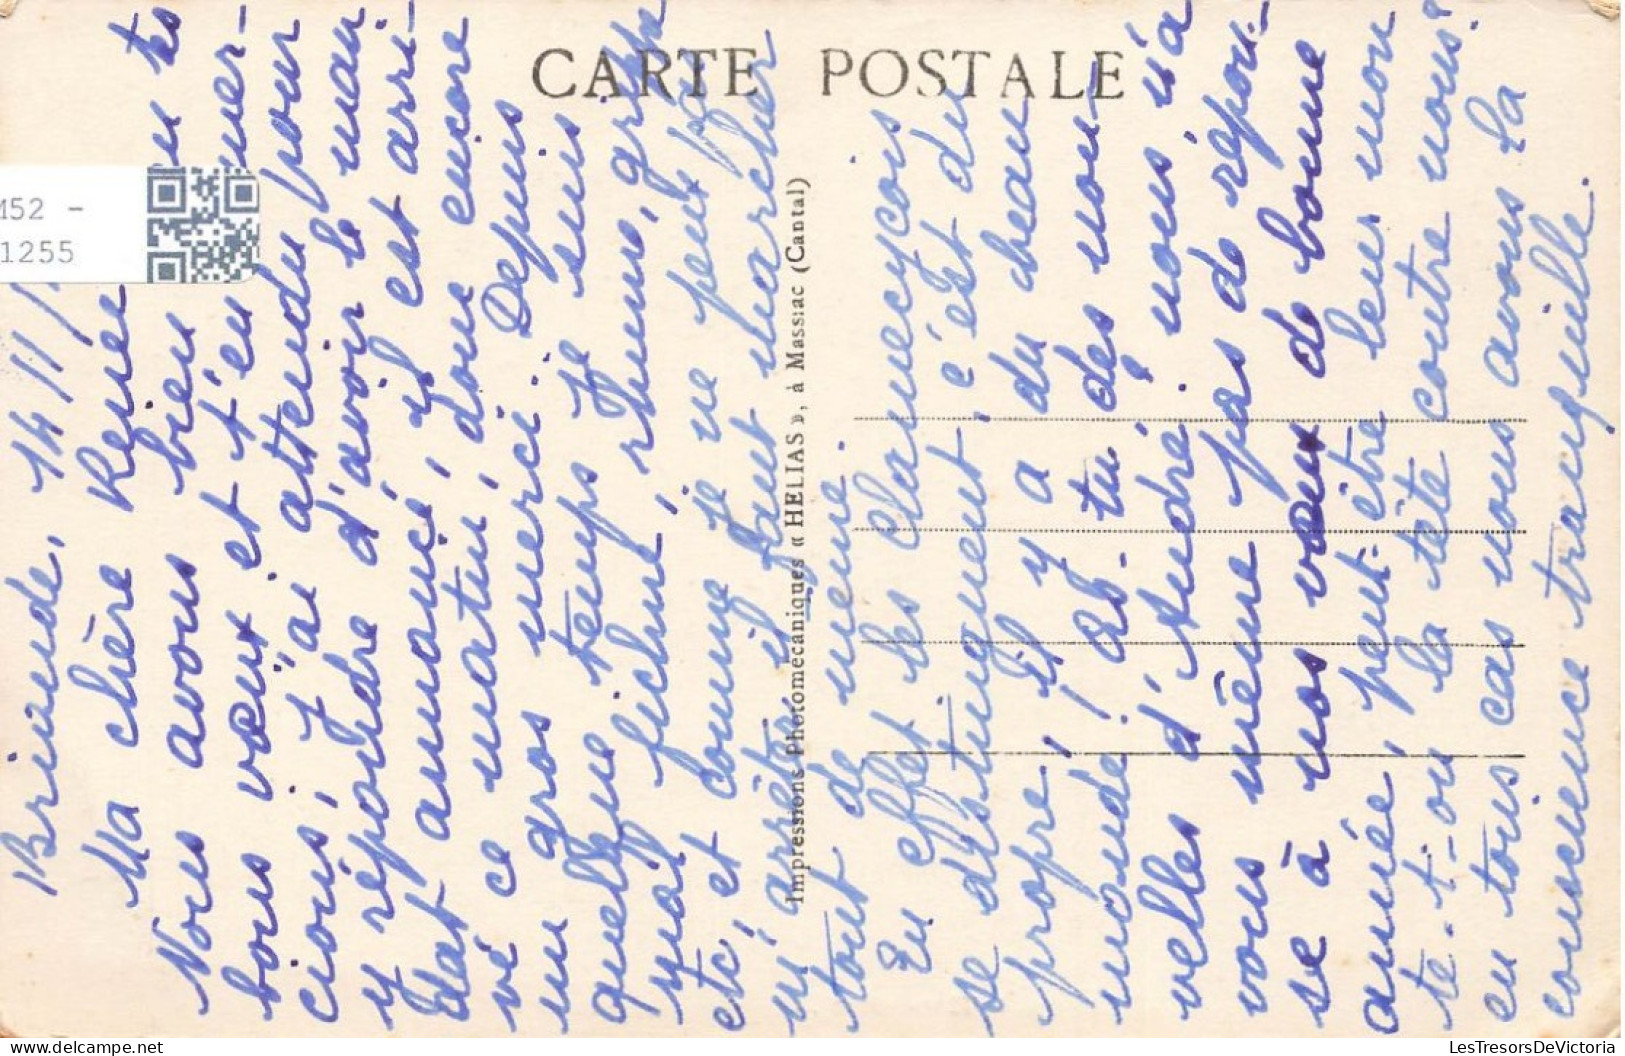 CARTE POSTALE
Impressions Photomécaniques « HELIAS », à Massiac (Cantal)
M52 -
1255
Brioude, 14/11/
Ma chère Renée
Nous avons bien tes
bons vœux et t'en remer-
cions, j'ai attendu pour
y répondre d'avoir le man-
dat annoncé, il est arri-
vé ce matin, donc encore
un gros merci. Depuis
quelque temps je suis
mal fichue, rhume, grippe
etc, et comme je ne peux pas
m'arrêter il faut marcher
tout de même.
En effet les Clamecycois
se distinguent, c'est du
propre, il y a du beau
monde! As-tu des nou-
velles d'André, nous n'a
vous même pas de répon-
se à nos vœux de bonne
année, peut-être leur mon
te-t-on la tête contre nous?
en tous cas nous avons la
conscience tranquille.
LesTresorsDeVictoria
www.delcampe.net